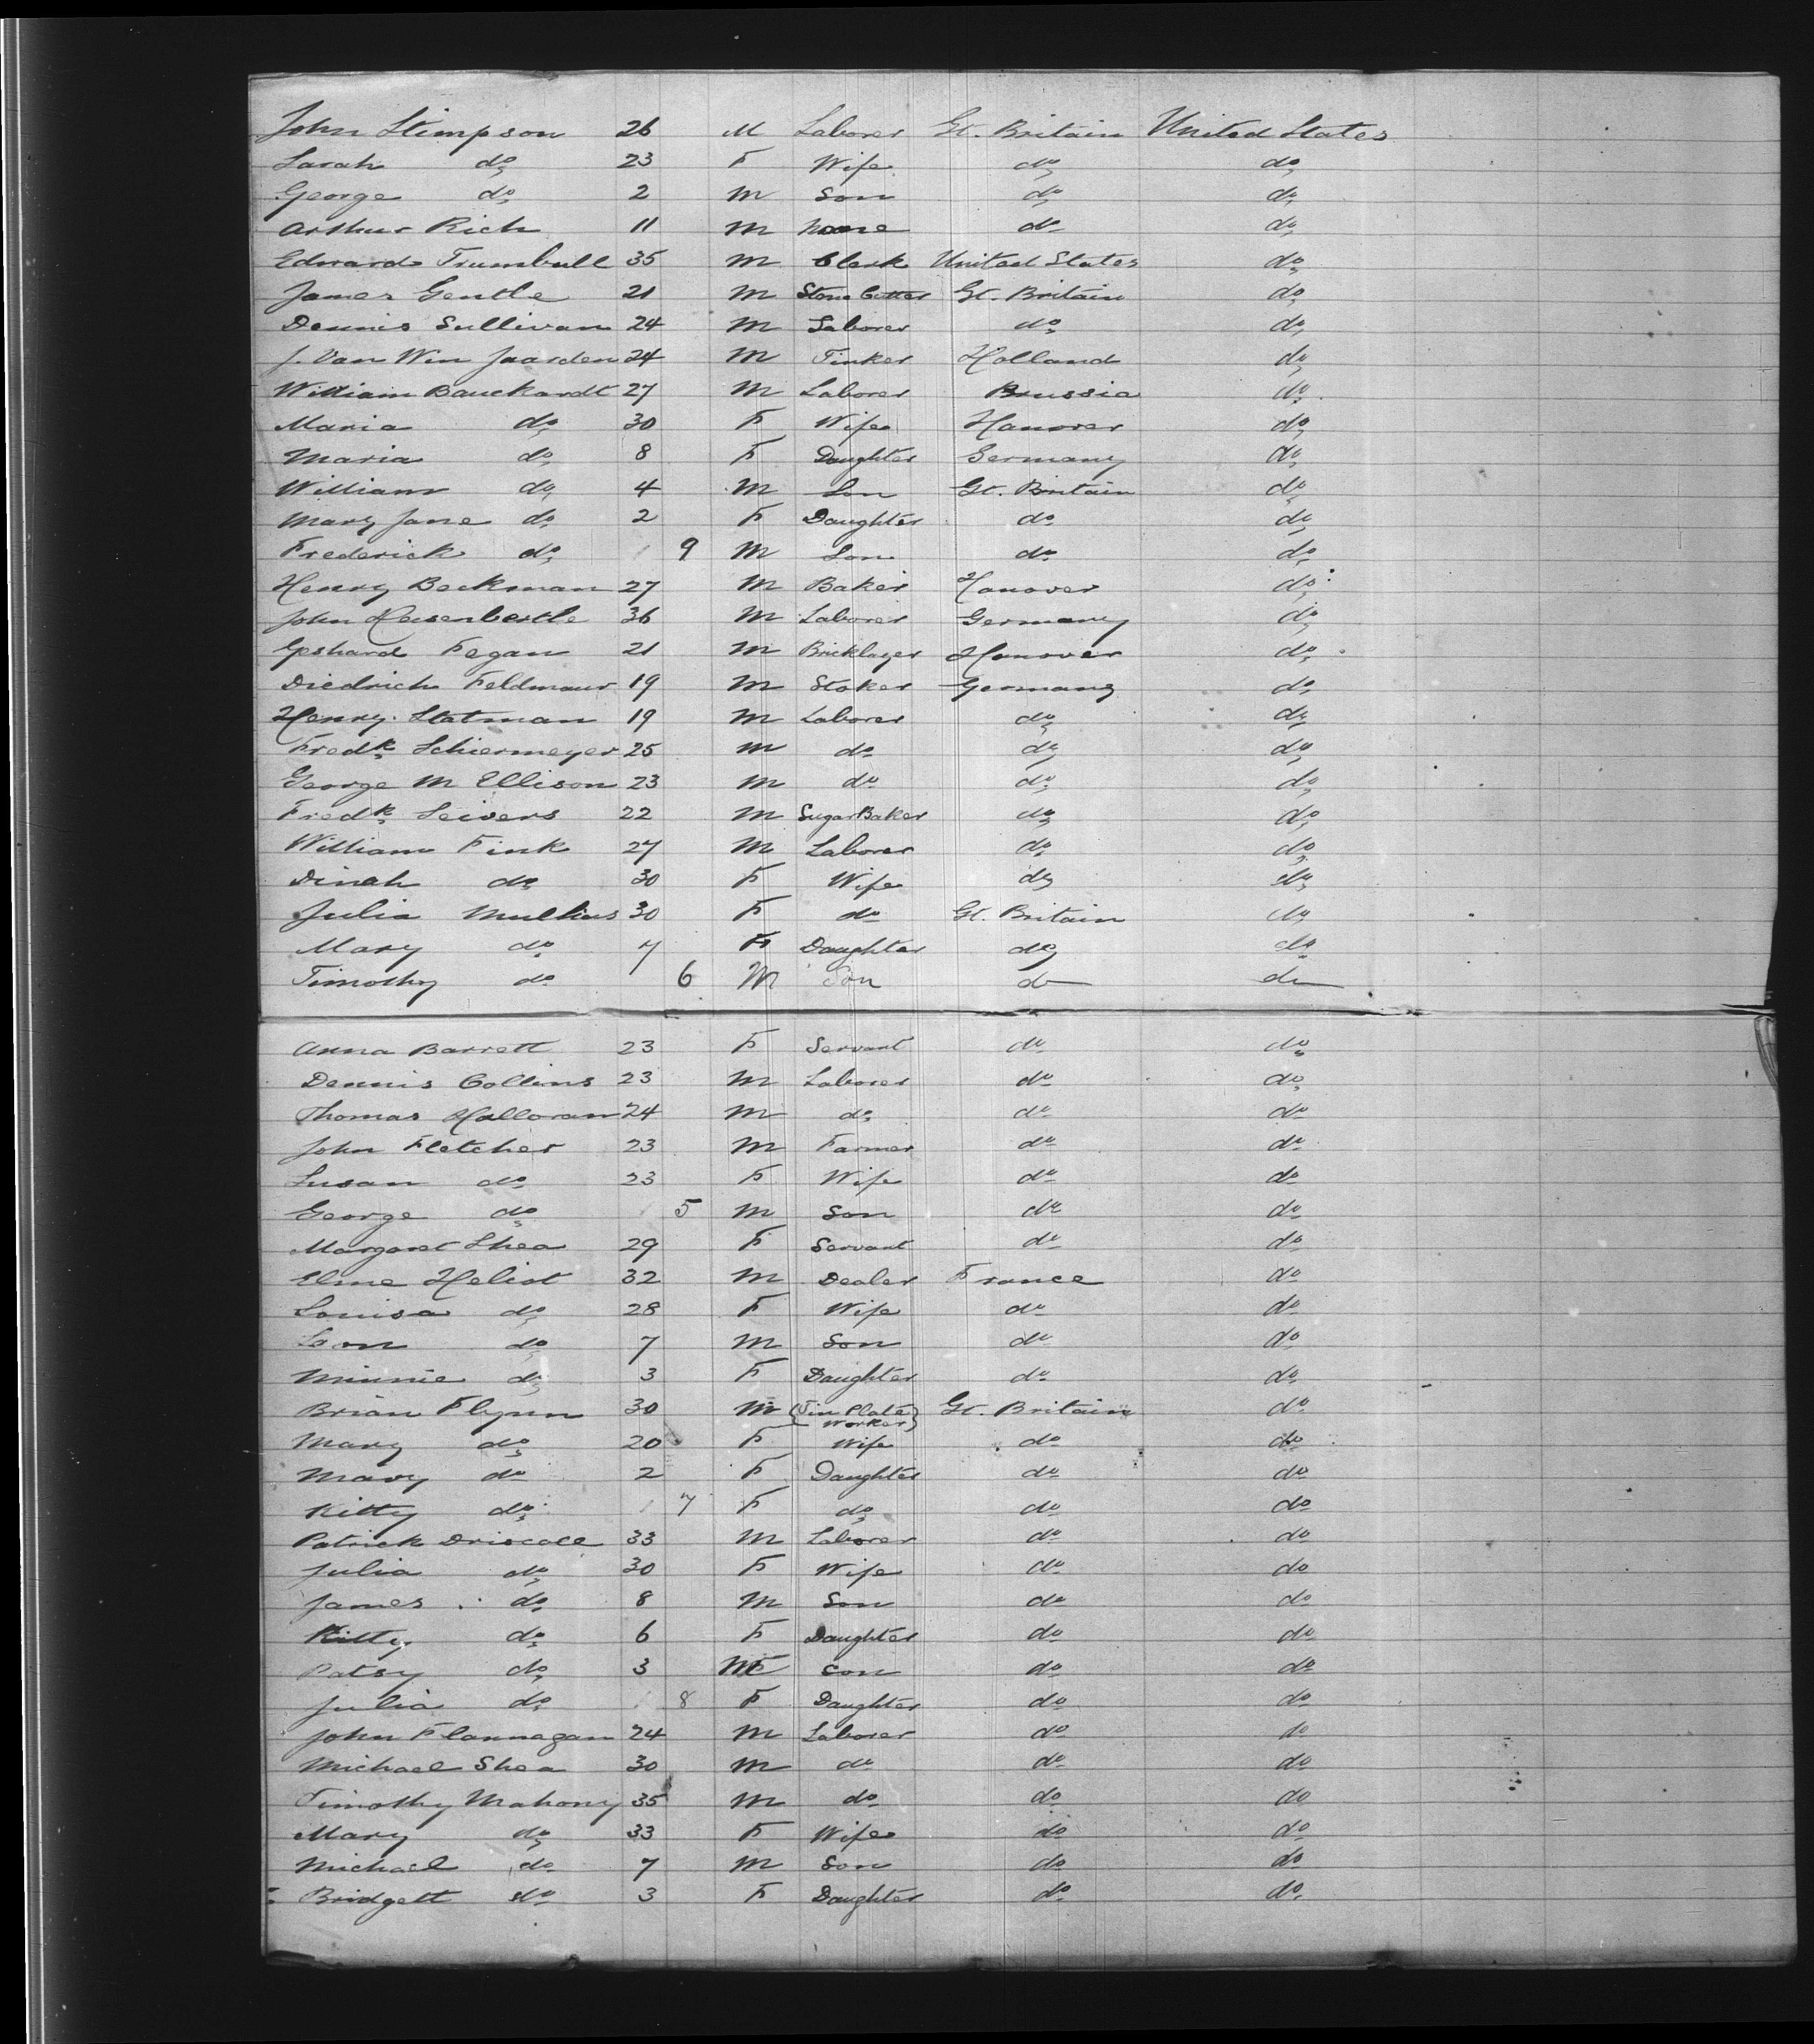 John Stimpson 26 M Laborer Gt. Britain United States
Sarah do 23 F Wife do do
George do 2 M Son do do
Arthur Rich 11 M None do do
Edward Trumbull 35 M Clerk United States do
James Gentle 21 M Stone Cutter Gt. Britain do
Dennis Sullivan 24 M Laborer do do
J. Van Win Jaarden 24 M Tinker Holland do
William Bauckardt 27 M Laborer Prussia do
Maria do 30 F Wife Hanover do
Maria do 8 F Daughter Germany do
William do 4 M Son Gt. Britain do
Mary Jane do 2 F Daughter do do
Frederick do 9 M Son do do
Henry Beckman 27 M Baker Hanover do
John 36 M Laborer Germany do
Fegan 21 M Bricklayer Hanover do
Diedrich Feldmaur 19 M Stoker Germany do
Henry Statman 19 M Laborer do do
Fredk Schiermeyer 25 M do do do
George M Ellison 23 M do do do
Fredk Seivers 22 M Sugar Baker do do
William Fink 27 M Laborer do do
Dinah do 30 F Wife do do
Julia Mullins 30 F do Gt. Britain do
Mary do 7 F Daughter do do
Timothy do 6 M Son do do
Anna Barrett 23 F Servant do do
Dennis Collins 23 M Laborer do do
Thomas Halloran 24 M do do do
John Fletcher 23 M Farmer do do
Susan do 23 F Wife do do
George do 5 M Son do do
Margaret Shea 29 F Servant do do
Elme Heliot 32 M Dealer France do
Louisa do 28 F Wife do do
Leon do 7 M Son do do
Minnie do 3 F Daughter do do
Brian Flynn 30 M {Tin Plate Worker} Gt. Britain do
Mary do 20 F Wife do do
Mary do 2 F Daughter do do
Kitty do 7 F do do do
Patrick Driscoll 33 M Laborer do do
Julia do 30 F Wife do do
James do 8 M Son do do
Kitty do 6 F Daughter do do
Patsy do 3 M Son do do
Julia do 8 F Daughter do do
John Flannagan 24 M Laborer do do
Michael Shea 30 M do do do
Timothy Mahony 35 M do do do
Mary do 33 F Wife do do
Michael do 7 M Son do do
Bridgett do 3 F Daughter do do